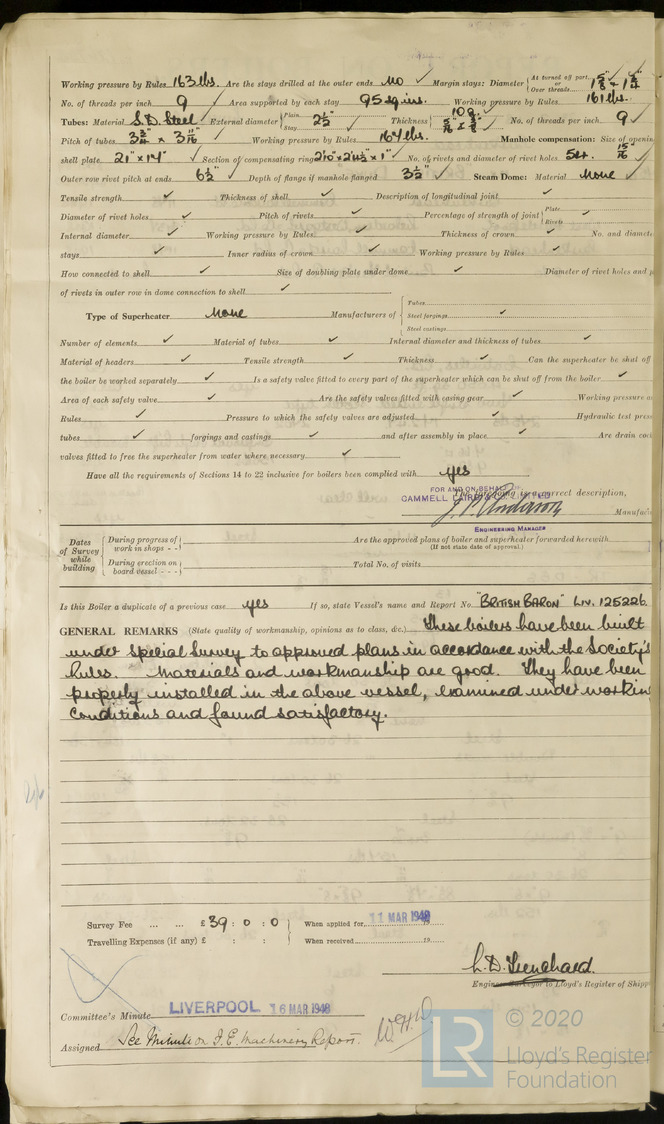 Working pressure by Rules 163 lbs. Are the stays drilled at the outer ends No ✓ Margin stays: Diameter { At turned off part, or Over threads
No. of threads per inch 9 Area supported by each stay 95 sq. ins. Working pressure by Rules 161 lbs.
Tubes: Material S.D. Steel External diameter { Plain Stay 2½" ✓ Thickness { 10 g. 5/16" & 3/8" No. of threads per inch 9 ✓
Pitch of tubes 3¾" x 3 11/16" Working pressure by Rules 164 lbs. Manhole compensation: Size of openin
shell plate 21" x 17" ✓ Section of compensating ring ✓ No. of rivets and diameter of rivet holes 15/16 ✓
Outer row rivet pitch at ends 6½" ✓ Depth of flange if manhole flanged 3½" ✓ Steam Dome: Material None ✓
Tensile strength ✓ Thickness of shell ✓ Description of longitudinal joint ✓
Diameter of rivet holes ✓ Pitch of rivets ✓ Percentage of strength of joint { Plate Rivets ✓
Internal diameter ✓ Working pressure by Rules ✓ Thickness of crown ✓ No. and diamete
stays ✓ Inner radius of crown ✓ Working pressure by Rules ✓
How connected to shell ✓ Size of doubling plate under dome ✓ Diameter of rivet holes and p
of rivets in outer row in dome connection to shell ✓
Type of Superheater None Manufacturers of { Tubes Steel forgings ✓ Steel castings
Number of elements ✓ Material of tubes ✓ Internal diameter and thickness of tubes ✓
Material of headers ✓ Tensile strength ✓ Thickness ✓ Can the superheater be shut off
the boiler be worked separately ✓ Is a safety valve fitted to every part of the superheater which can be shut off from the boiler ✓
Area of each safety valve ✓ Are the safety valves fitted with easing gear ✓ Working pressure a
Rules ✓ Pressure to which the safety valves are adjusted ✓ Hydraulic test press
tubes ✓ forgings and castings ✓ and after assembly in place ✓ Are drain coc
valves fitted to free the superheater from water where necessary ✓
Have all the requirements of Sections 14 to 22 inclusive for boilers been complied with yes
FOR AND ON BEHALF OF
CAMMELL LAIRD & CO. LIMITED
The foregoing is a correct description,
J. P. Anderson Manufac
ENGINEERING MANAGER
Dates of Survey while building { During progress of work in shops - - Are the approved plans of boiler and superheater forwarded herewith
(If not state date of approval.)
During erection on board vessel - - - Total No. of visits
Is this Boiler a duplicate of a previous case yes If so, state Vessel's name and Report No. "BRITISH BARON" LIV. 125226.
GENERAL REMARKS (State quality of workmanship, opinions as to class, &c.) These boilers have been built
under Special Survey to approved plans in accordance with the Society's
Rules. Materials and workmanship are good. They have been
properly installed in the above vessel, examined under workin
conditions and found satisfactory.
Survey Fee ... ... £ 39 : 0 : 0 When applied for 11 MAR 1948 19
Travelling Expenses (if any) £ : : When received 19
Engineer Surveyor to Lloyd's Register of Shipp
Committee's Minute LIVERPOOL 16 MAR 1948
Assigned See Minute on F.E. Machinery Report.
W.H.D.
LR © 2020
Lloyd's Register
Foundation